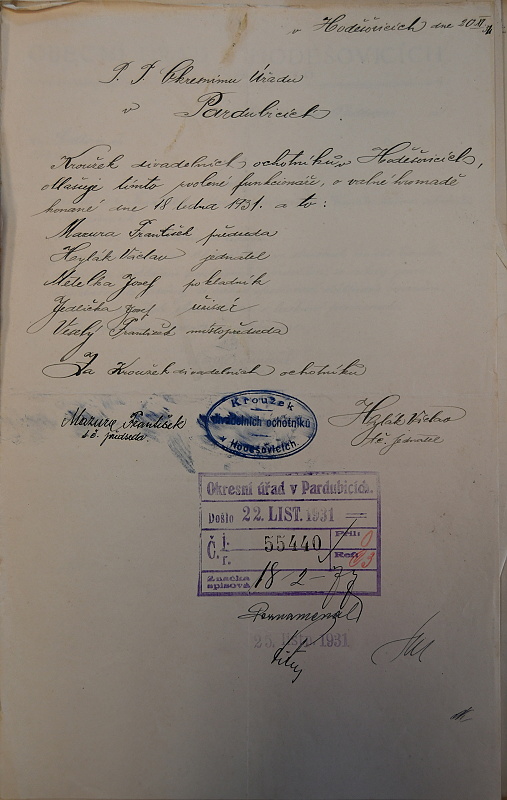 v Hodešovicích dne 20.XI.31
P. T. Okresnímu Úřadu
v Pardubicích.
Kroužek divadelních ochotníků v Hodešovicích,
ohlašuje tímto zvolené funkcionáře, o valné hromadě
konané dne 18 ledna 1931. a to:
Mazura František předseda
Hylák Václav jednatel
Metelka Josef pokladník
Jedlička Josef řiditel
Veselý František místopředseda
Za Kroužek divadelních ochotníků
Mazura František
t. č. předseda
Kroužek
divadelních ochotníků
v Hodešovicích
Hylák Václav
t. č. jednatel
Okresní úřad v Pardubicích.
Došlo 22. LIST. 1931
Příl.: 0
Č. j. r. 55440
Ref.: 93
Značka spisová 18-2-77
Poznamenal
23. listop. 1931